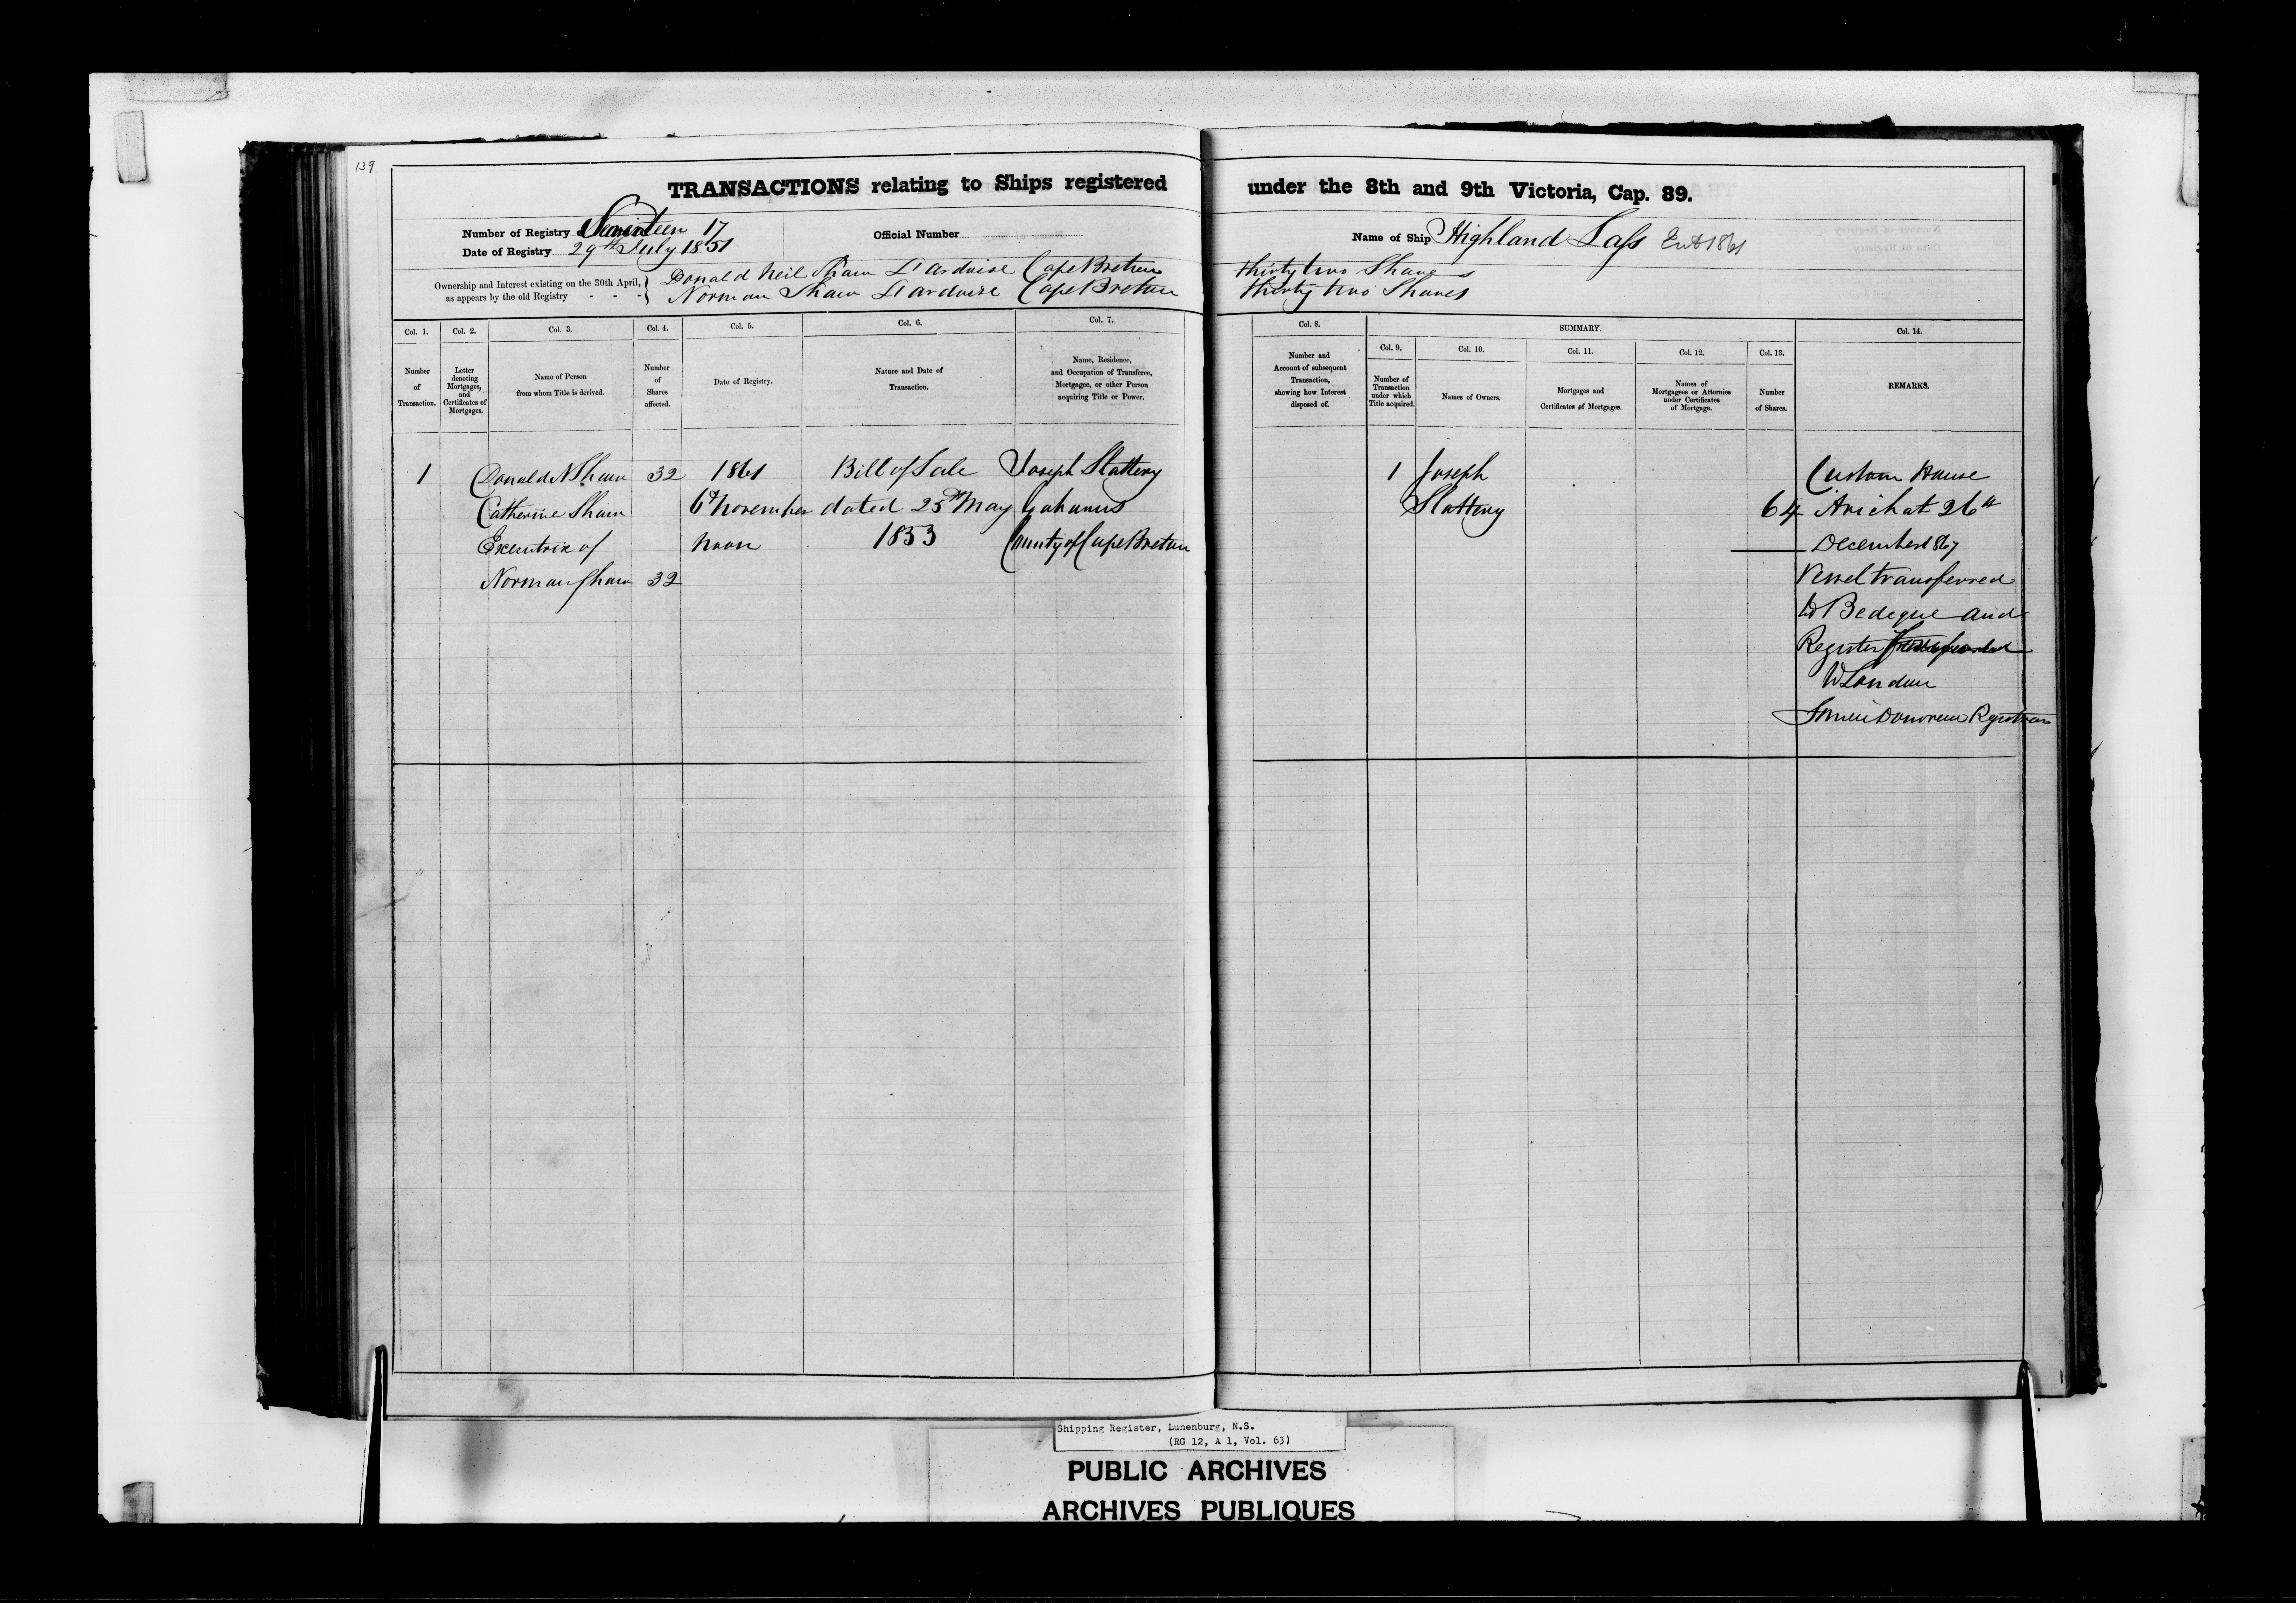 139
TRANSACTIONS relating to Ships registered under the 8th and 9th Victoria, Cap. 89.
Number of Registry Seventeen 17 Official Number Name of Ship Highland Lass Ent 1861
Date of Registry 29th July 1851
Ownership and Interest existing on the 30th April, as appears by the old Registry
Donald Neil Shaw L'Ardoise Cape Breton thirty two Shares
Norman Shaw L'Ardoise Cape Breton thirty two Shares
Col. 1. Col. 2. Col. 3. Col. 4. Col. 5. Col. 6. Col. 7. Col. 8. SUMMARY. Col. 14.
Col. 9. Col. 10. Col. 11. Col. 12. Col. 13.
Number of Transaction.
Letter denoting Mortgages, and Certificates of Mortgages.
Name of Person from whom Title is derived.
Number of Shares affected.
Date of Registry.
Nature and Date of Transaction.
Name, Residence, and Occupation of Transferee, Mortgagee, or other Person acquiring Title or Power.
Number and Account of subsequent Transaction, showing how Interest disposed of.
Number of Transaction under which Title acquired.
Names of Owners.
Mortgages and Certificates of Mortgages.
Names of Mortgagees or Attornies under Certificates of Mortgage.
Number of Shares.
REMARKS.
1 Donald N Shaw 32 1861 Bill of Sale Joseph Slattery 1 Joseph Custom House
Catherine Shaw 6th November dated 25th May Gabarus Slattery 64 Arichat 26th
Executrix of noon 1853 County of Cape Breton December 1867
Norman Shaw 32 Vessel transferred
to Bedeque and
Register
to London
Donovan Registrar
Shipping Register, Lunenburg, N.S.
(RG 12, A 1, Vol. 63)
PUBLIC ARCHIVES
ARCHIVES PUBLIQUES